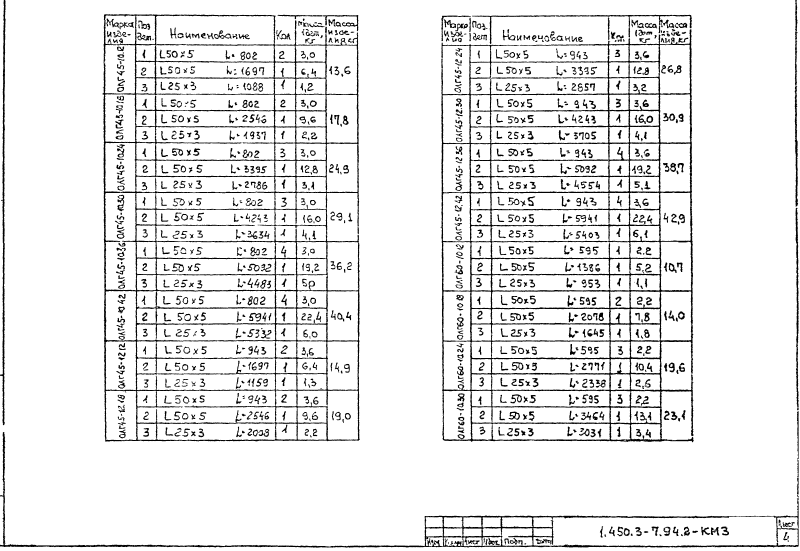 Марка изделия Поз. дет. Наименование Кол Масса 1дет, кг Масса изделия, кг
ОЛГ45-10.12 1 L50×5 L=802 2 3,0 13,6
2 L50×5 L=1697 1 6,4
3 L25×3 L=1088 1 1,2
ОЛГ45-10.18 1 L50×5 L=802 2 3,0 17,8
2 L50×5 L=2546 1 9,6
3 L25×3 L=1937 1 2,2
ОЛГ45-10.24 1 L50×5 L=802 3 3,0 24,9
2 L50×5 L=3395 1 12,8
3 L25×3 L=2786 1 3,1
ОЛГ45-10.30 1 L50×5 L=802 3 3,0 29,1
2 L50×5 L=4243 1 16,0
3 L25×3 L=3634 1 4,1
ОЛГ45-10.36 1 L50×5 L=802 4 3,0 36,2
2 L50×5 L=5092 1 19,2
3 L25×3 L=4483 1 5,0
ОЛГ45-10.42 1 L50×5 L=802 4 3,0 40,4
2 L50×5 L=5941 1 22,4
3 L25×3 L=5332 1 6,0
ОЛГ45-12.12 1 L50×5 L=943 2 3,6 14,9
2 L50×5 L=1697 1 6,4
3 L25×3 L=1159 1 1,3
ОЛГ45-12.18 1 L50×5 L=943 2 3,6 19,0
2 L50×5 L=2546 1 9,6
3 L25×3 L=2008 1 2,2
Марка изделия Поз. дет Наименование Кол. Масса 1дет, кг Масса изделия, кг
ОЛГ45-12.24 1 L50×5 L=943 3 3,6 26,8
2 L50×5 L=3395 1 12,8
3 L25×3 L=2857 1 3,2
ОЛГ45-12.30 1 L50×5 L=943 3 3,6 30,9
2 L50×5 L=4243 1 16,0
3 L25×3 L=3705 1 4,1
ОЛГ45-12.36 1 L50×5 L=943 4 3,6 38,7
2 L50×5 L=5092 1 19,2
3 L25×3 L=4554 1 5,1
ОЛГ45-12.42 1 L50×5 L=943 4 3,6 42,9
2 L50×5 L=5941 1 22,4
3 L25×3 L=5403 1 6,1
ОЛГ60-10.12 1 L50×5 L=595 2 2.2 10,7
2 L50×5 L=1386 1 5,2
3 L25×3 L=953 1 1,1
ОЛГ60-10.18 1 L50×5 L=595 2 2,2 14,0
2 L50×5 L=2078 1 7,8
3 L25×3 L=1645 1 1,8
ОЛГ60-10.24 1 L50×5 L=595 3 2,2 19,6
2 L50×5 L=2771 1 10,4
3 L25×3 L=2338 1 2,6
ОЛГ60-10.30 1 L50×5 L=595 3 2,2 23,1
2 L50×5 L=3464 1 13,1
3 L25×3 L=3031 1 3,4
1.450.3-7.94.2-КМ3
Лист
4
Изм Кол.уч Лист №док Подп. Дата